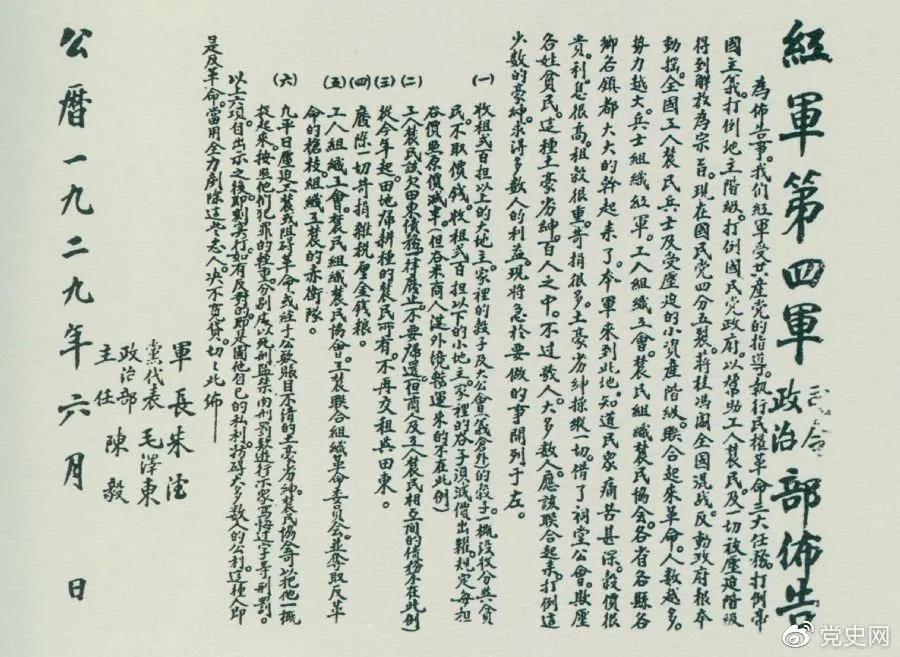 紅軍第四軍司令政治部佈告
為佈告事。我們紅軍受共產黨的指導。執行民權革命三大任務。打倒帝
國主義。打倒地主階級。打倒國民党政府。以幫助工人農民及一切被壓迫階級
得到解放為宗旨。現在國民党四分五裂。蔣桂馮閻全國混战。反動政府根本
動摇。全國工人農民兵士及受壓迫的小資產階級。聯合起來革命。人數越多。
勢力越大。兵士組織紅軍。工人組織工會。農民組織農民協會。各省各縣各
鄉各鎮都大大的幹起來了。本軍來到此地。知道民衆痛苦甚深。穀價很
貴。利息很高。租穀很重。苛捐很多。土豪劣紳操縱一切。借了祠堂公會。欺壓
各姓貧民。這種土豪劣紳。百人之中。不过數人。大多數人。應該联合起來。打倒這
少數的豪紳。求得多數人的利益。現將急於要做的事開列于左。
(一) 收租弍百担以上的大地主。家裡的穀子及大公會(義倉外)的穀子。一概没收分與貧
民。不取價钱。收租弍百担以下的小地主。家裡的谷子須減價出糶。規定每担
谷價照原價減半。(但谷米商人從外境辦運來的不在此例)
(二) 工人農民該欠田東債務。一律廢止。不要歸還。(但商人及工人農民相互間的債務不在此例)
(三) 從今年起。田地歸耕種的農民所有。不再交租與田東。
(四) 廢除一切苛捐雜税厘金錢粮。
(五) 工人組織工會。農民組織農民協會。工農联合組織革命委員会。並奪取反革
命的槍枝組織工農的赤衛隊。
(六) 凡平日壓迫工農或阻碍革命或經手公款賬目不清的土豪劣紳。農民協會可以把他一概
捉起來。按照他们犯罪的輕重。分别處以死刑監禁肉刑罰款遊行示衆寫悔过字等刑罰。
以上六項自出示之後。即刻实行。如有反對的。即是圖他自己的私利。妨碍大多數人的公利。這種人即
是反革命。當用全力剷除這些惡人。决不寬貸。切切此佈
軍長 朱德
黨代表 毛澤東
政治部主任 陳毅
公曆一九二九年六月 日
党史网